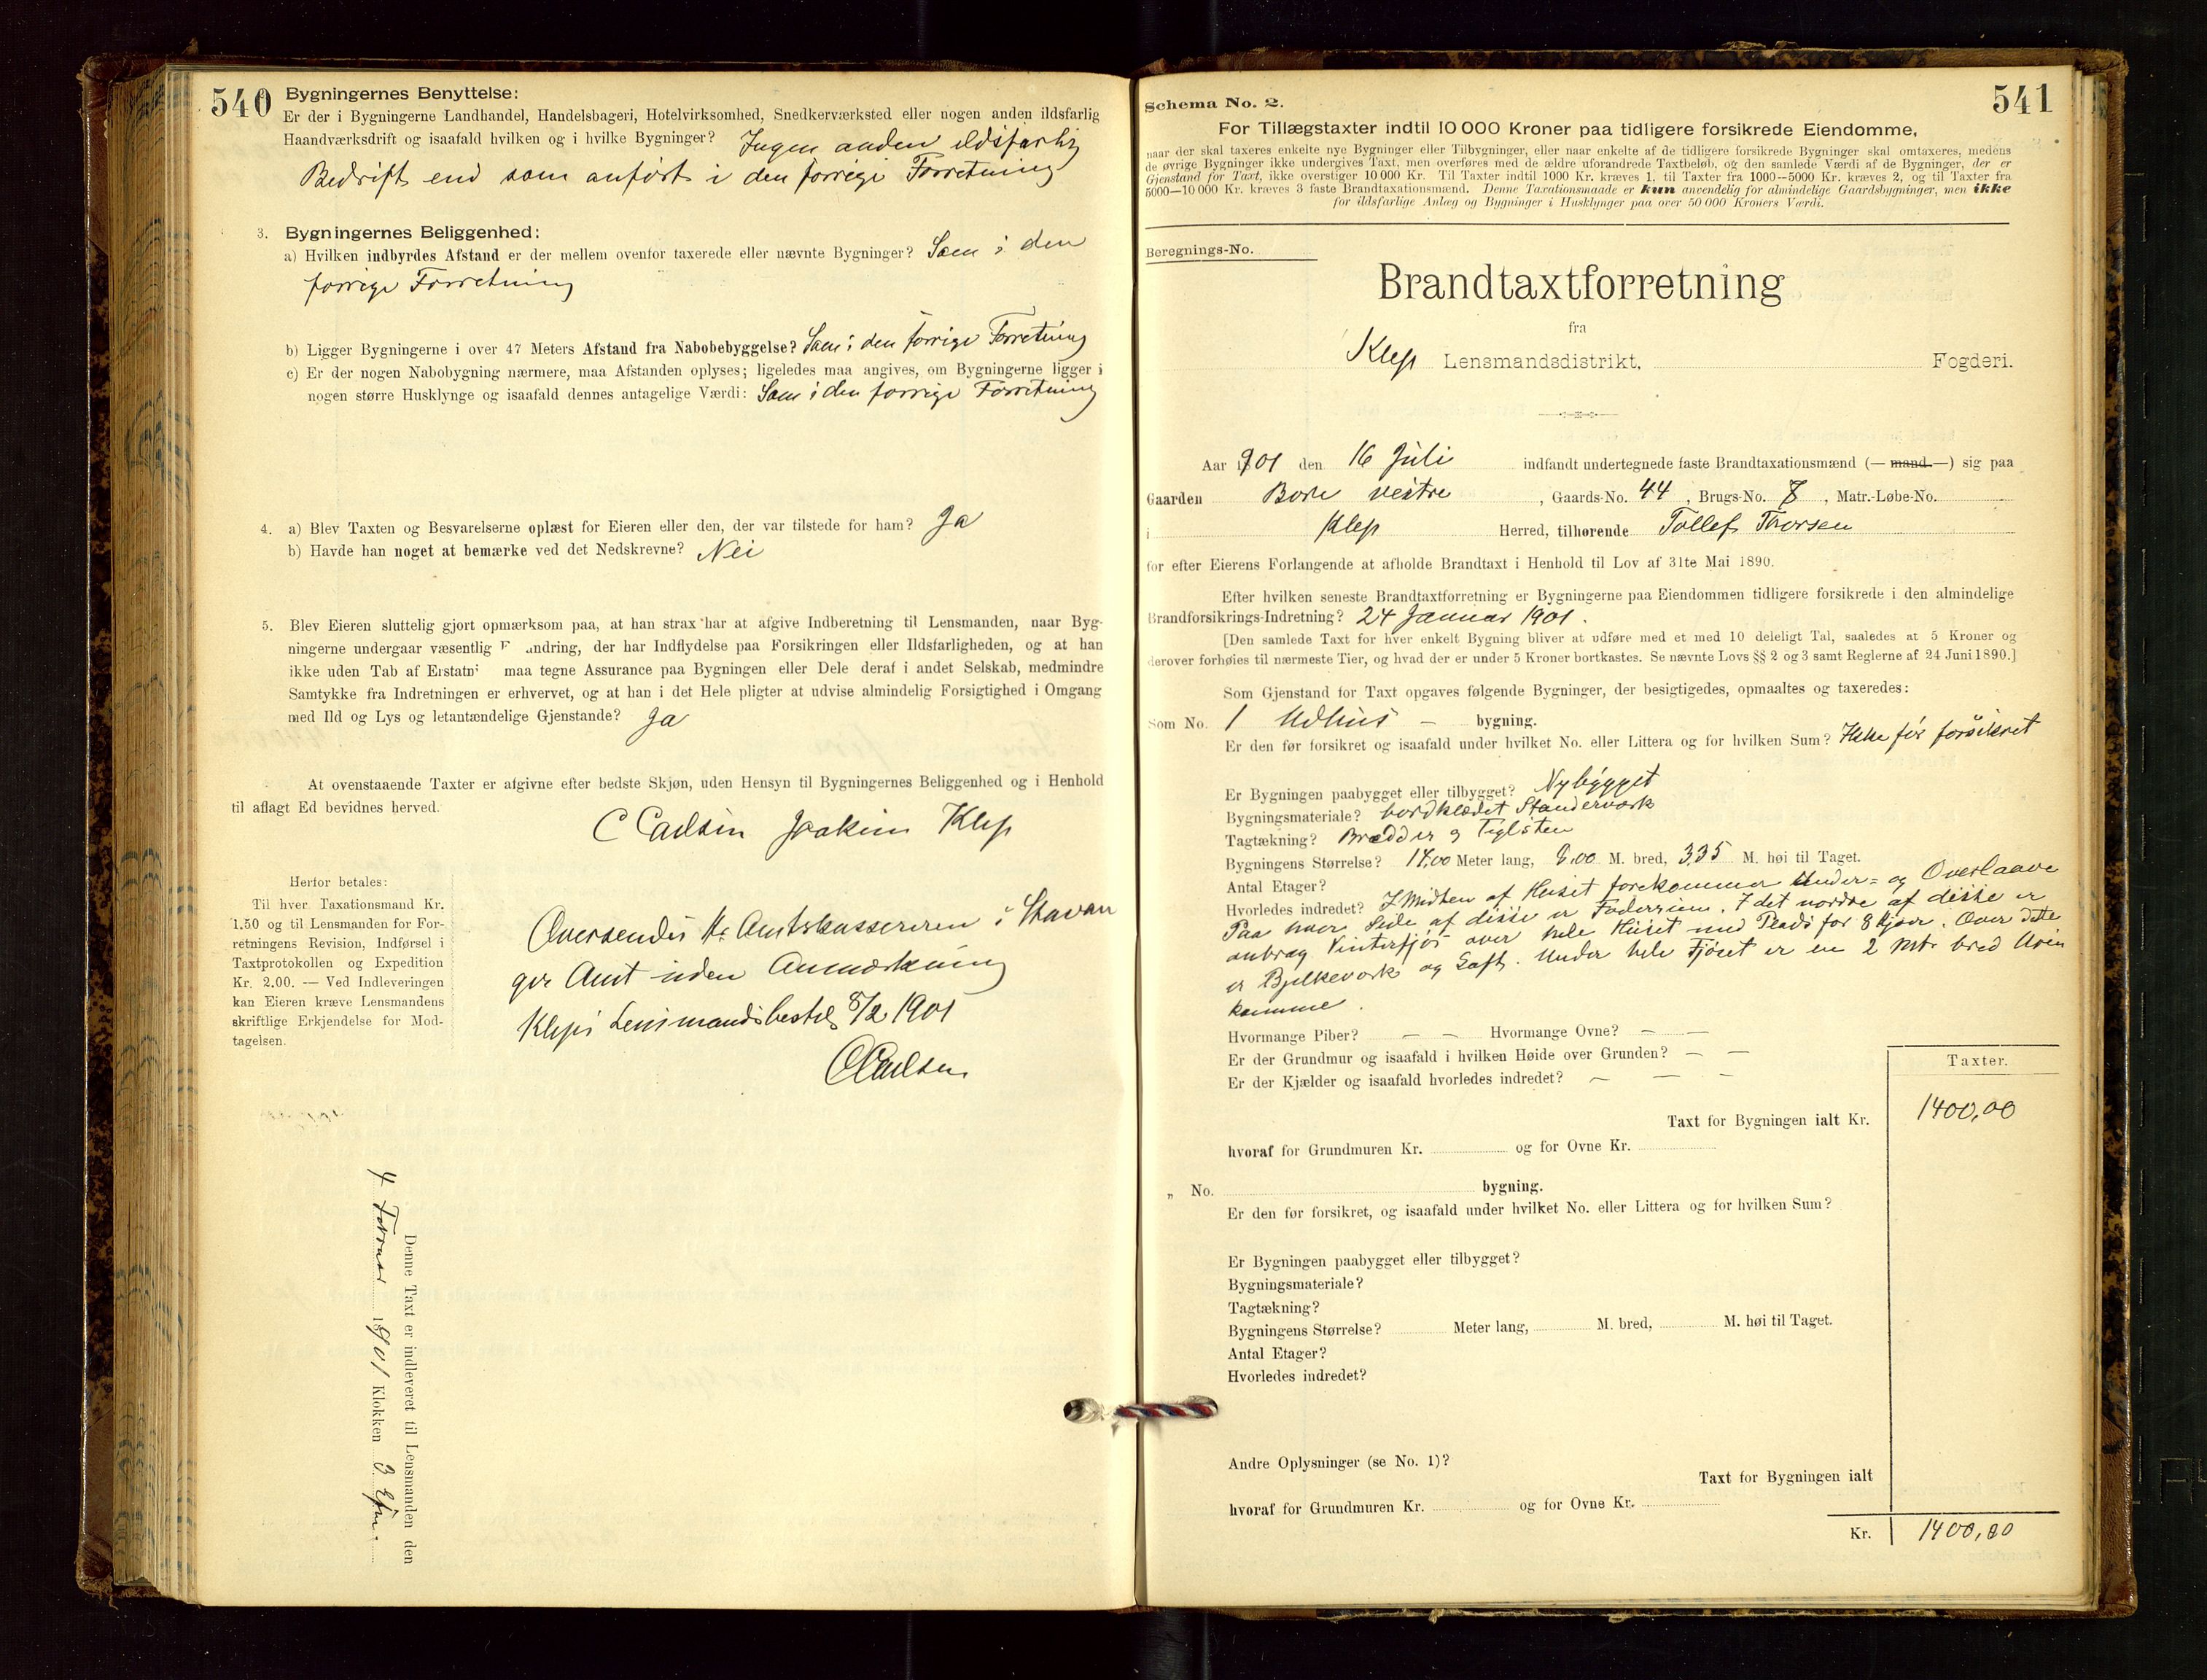 540
Bygningernes Benyttelse:
Er der i Bygningerne Landhandel, Handelsbageri, Hotelvirksomhed, Snedkerværksted eller nogen anden ildsfarlig
Haandværksdrift og isaafald hvilken og i hvilke Bygninger? Ingen anden ildsfarlig
Bedrift end som anført i den forrige Forretning
3. Bygningernes Beliggenhed:
a) Hvilken indbyrdes Afstand er der mellem ovenfor taxerede eller nævnte Bygninger? Som i den
forrige Forretning
b) Ligger Bygningerne i over 47 Meters Afstand fra Nabobebyggelse? Som i den forrige Forretning
c) Er der nogen Nabobygning nærmere, maa Afstanden oplyses; ligeledes maa angives, om Bygningerne ligger i
nogen større Husklynge og isaafald dennes antagelige Værdi: Som i den forrige Forretning
4. a) Blev Taxten og Besvarelserne oplæst for Eieren eller den, der var tilstede for ham? Ja
b) Havde han noget at bemærke ved det Nedskrevne? Nei
5. Blev Eieren sluttelig gjort opmærksom paa, at han strax har at afgive Indberetning til Lensmanden, naar Byg-
ningerne undergaar væsentlig F andring, der har Indflydelse paa Forsikringen eller Ildsfarligheden, og at han
ikke uden Tab af Erstatn maa tegne Assurance paa Bygningen eller Dele deraf i andet Selskab, medmindre
Samtykke fra Indretningen er erhvervet, og at han i det Hele pligter at udvise almindelig Forsigtighed i Omgang
med Ild og Lys og letantændelige Gjenstande? Ja
At ovenstaaende Taxter er afgivne efter bedste Skjøn, uden Hensyn til Bygningernes Beliggenhed og i Henhold
til aflagt Ed bevidnes herved.
C Carlsen Joakim Klep
Herfor betales:
Til hver Taxationsmand Kr.
1.50 og til Lensmanden for For-
retningens Revision, Indførsel i
Taxtprotokollen og Expedition
Kr. 2.00. — Ved Indleveringen
kan Eieren kræve Lensmandens
skriftlige Erkjendelse for Mod-
tagelsen.
Oversendes Hr Amtskassereren i Stavan
ger Amt uden Anmærkning
Kleps Lensmandsbestil 8/2 1901
C Carlsen
Denne Taxt er indleveret til Lensmanden den
4 Februar 1901 Klokken 3 Efm.
541
Schema No. 2.
For Tillægstaxter indtil 10 000 Kroner paa tidligere forsikrede Eiendomme,
naar der skal taxeres enkelte nye Bygninger eller Tilbygninger, eller naar enkelte af de tidligere forsikrede Bygninger skal omtaxeres, medens
de øvrige Bygninger ikke undergives Taxt, men overføres med de ældre uforandrede Taxtbeløb, og den samlede Værdi af de Bygninger, der er
Gjenstand for Taxt, ikke overstiger 10 000 Kr. Til Taxter indtil 1000 Kr. kræves 1, til Taxter fra 1000—5000 Kr. kræves 2, og til Taxter fra
5000—10 000 Kr. kræves 3 faste Brandtaxationsmænd. Denne Taxationsmaade er kun anvendelig for almindelige Gaardsbygninger, men ikke
for ildsfarlige Anlæg og Bygninger i Husklynger paa over 50 000 Kroners Værdi.
Beregnings-No.
Brandtaxtforretning
fra
Klep Lensmandsdistrikt, Fogderi.
Aar 1901 den 16 Juli indfandt undertegnede faste Brandtaxationsmænd (— mand —) sig paa
Gaarden Bore vestre, Gaards-No. 44, Brugs-No. 8, Matr.-Løbe-No.
i Klep Herred, tilhørende Tollef Thorsen
for efter Eierens Forlangende at afholde Brandtaxt i Henhold til Lov af 31te Mai 1890.
Efter hvilken seneste Brandtaxtforretning er Bygningerne paa Eiendommen tidligere forsikrede i den almindelige
Brandforsikrings-Indretning? 24 Januar 1901.
[Den samlede Taxt for hver enkelt Bygning bliver at udføre med et med 10 deleligt Tal, saaledes at 5 Kroner og
derover forhøies til nærmeste Tier, og hvad der er under 5 Kroner bortkastes. Se nævnte Lovs §§ 2 og 3 samt Reglerne af 24 Juni 1890.]
Som Gjenstand for Taxt opgaves følgende Bygninger, der besigtigedes, opmaaltes og taxeredes:
Som No. 1 Udhus — bygning.
Er den før forsikret og isaafald under hvilket No. eller Littera og for hvilken Sum? Ikke før forsikret
Er Bygningen paabygget eller tilbygget? Nybygget
Bygningsmateriale? bordklædet Standerværk
Tagtækning? Brædder og Teglsten
Bygningens Størrelse? 14,00 Meter lang, 8,00 M. bred, 3,35 M. høi til Taget.
Antal Etager?
Hvorledes indredet? I Midten af Huset forekommer Under- og Overlaave
Paa hver Side af disse er Foderrum. I det nordre af disse er
anbrag Vinterfjøs over hele Huset med Plads for 8 Kjør. Over dette
er Bjelkeværk og Loft. Under hele Fjøset er en 2 Mtr bred Urin
kumme.
Hvormange Piber? — — Hvormange Ovne? — —
Er der Grundmur og isaafald i hvilken Høide over Grunden? — —
Er der Kjælder og isaafald hvorledes indredet? — — —
Taxter.
Taxt for Bygningen ialt Kr. 1400,00
hvoraf for Grundmuren Kr. og for Ovne Kr.
„ No. bygning.
Er den før forsikret, og isaafald under hvilket No. eller Littera og for hvilken Sum?
Er Bygningen paabygget eller tilbygget?
Bygningsmateriale?
Tagtækning?
Bygningens Størrelse? Meter lang, M. bred, M. høi til Taget.
Antal Etager?
Hvorledes indredet?
Andre Oplysninger (se No. 1)?
Taxt for Bygningen ialt
hvoraf for Grundmuren Kr. og for Ovne Kr.
Kr. 1400,00